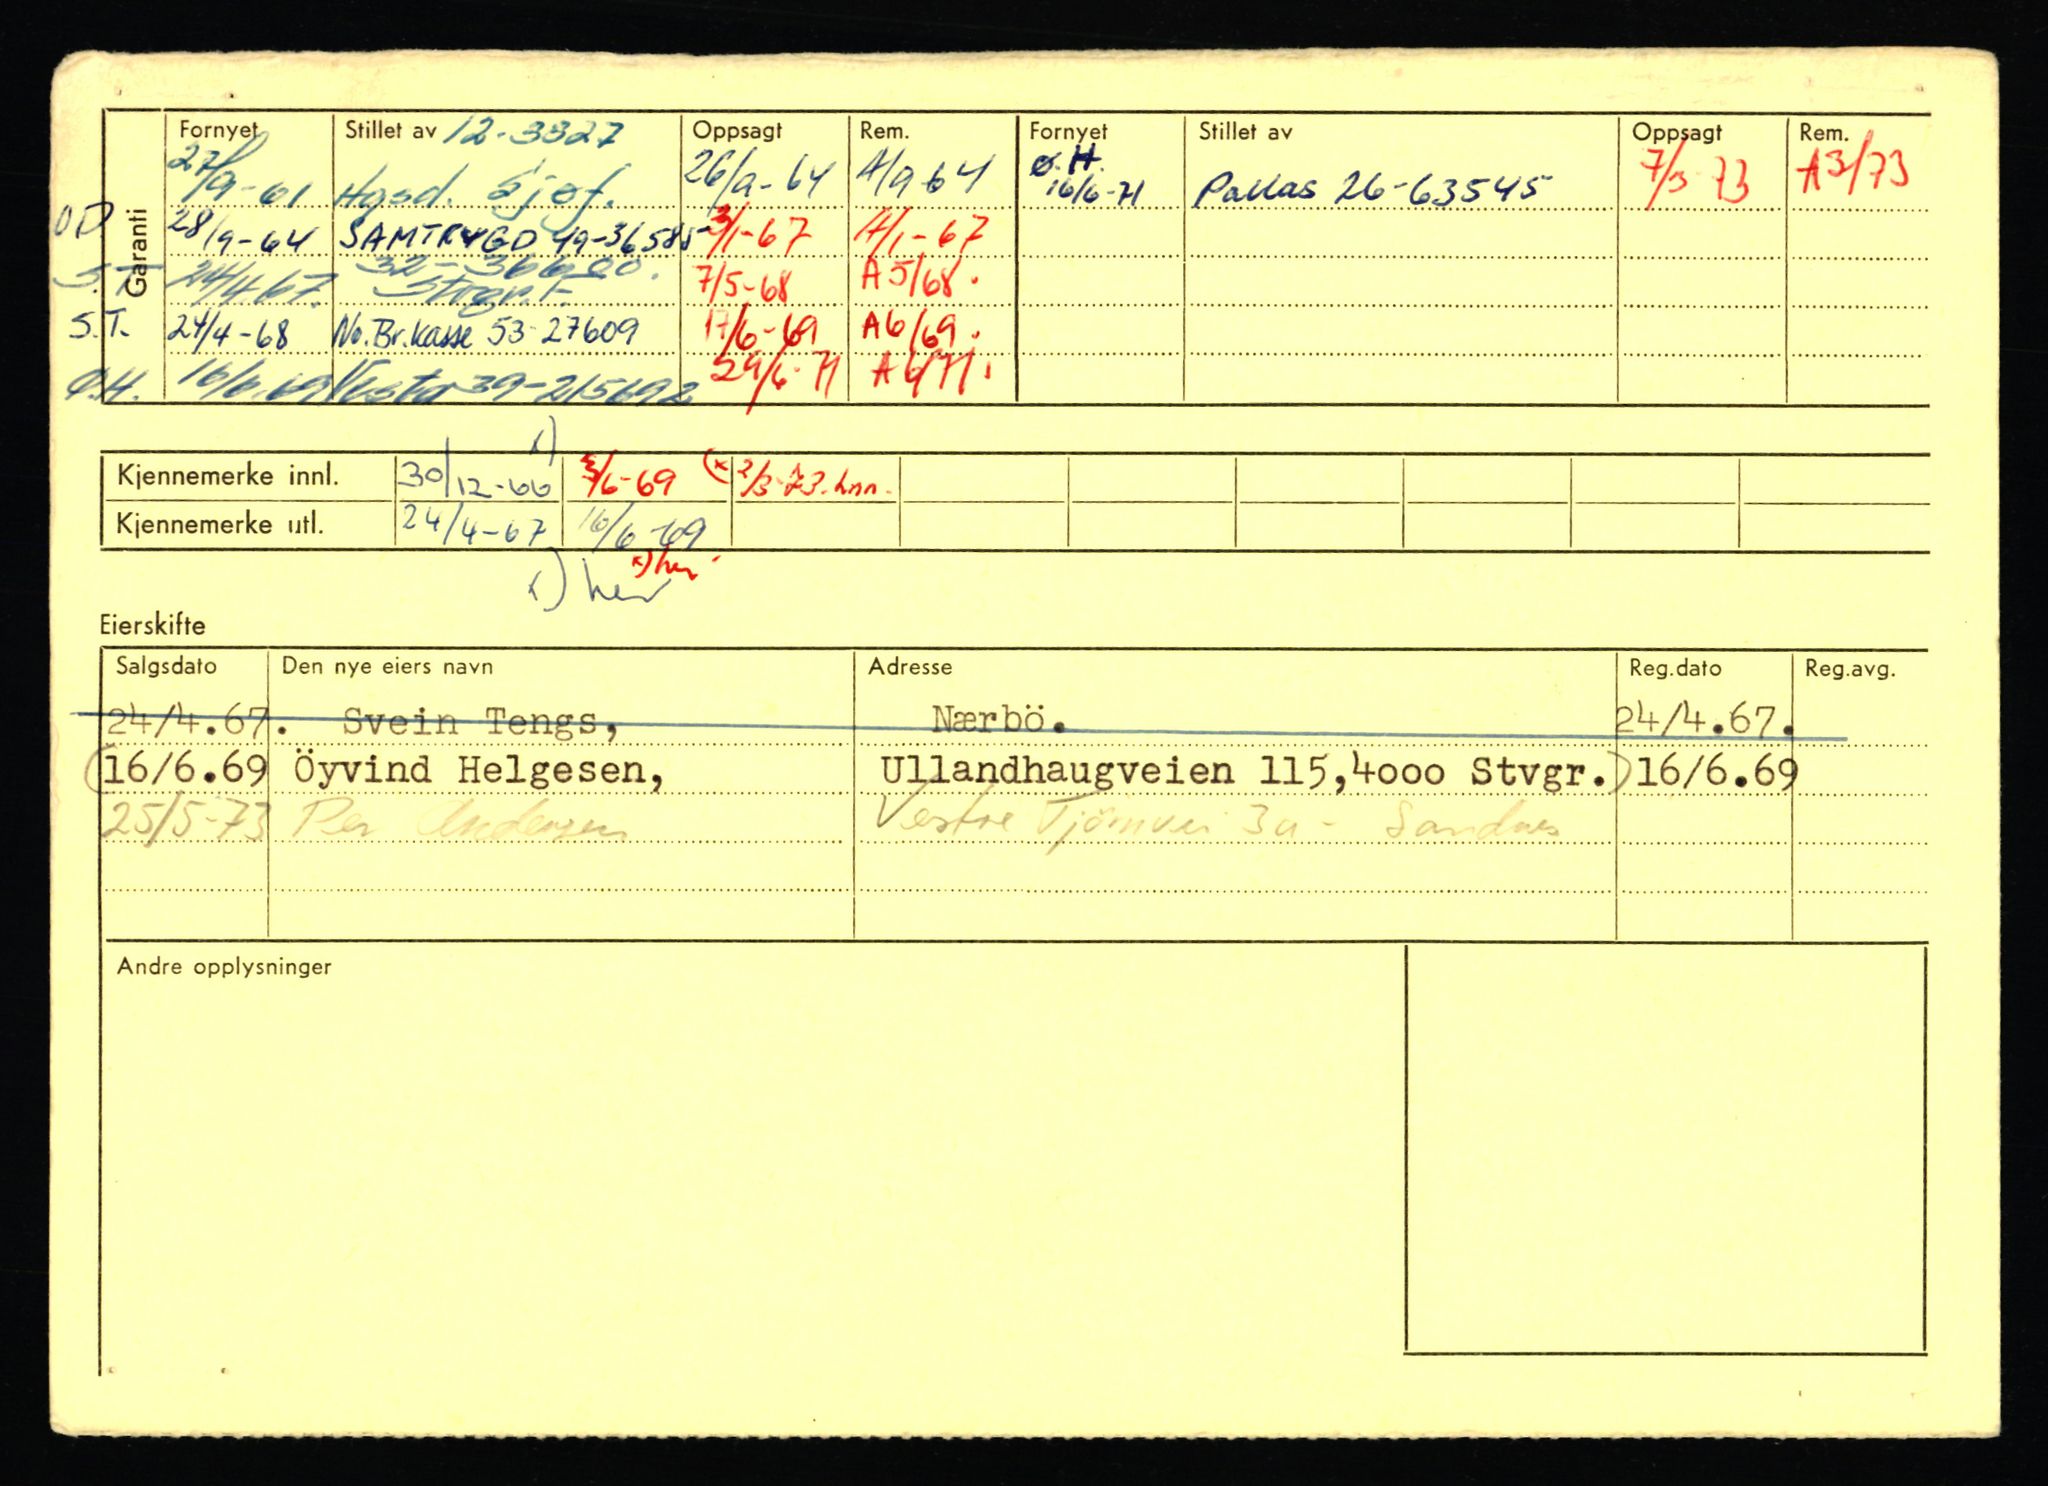 Fornyet Stillet av 12-3327 Oppsagt Rem. Fornyet Stillet av Oppsagt Rem.
Garanti
27/9-61 Hgsd. Sjøf. 26/9-64 A/9-64 Ø.H. 16/6-71 Pallas 26-63545 7/3-73 A3/73
28/9-64 SAMTRYGD 49-36585 3/1-67 A/1-67
S.T. 24/4.67. 32-36600. Stvgr. 7/5-68 A5/68.
S.T. 24/4-68 No.Br.kasse 53-27609 17/6-69 A6/69.
Ø.H. 16/6.69 Vesta 39-215692 29/6-71 A6/71.
x)
Kjennemerke innl. 30/12-66 3/6-69 (x 2/3-73. hnn.
Kjennemerke utl. 24/4-67 16/6-69
x) her
x) her
Eierskifte
Salgsdato Den nye eiers navn Adresse Reg.dato Reg.avg.
24/4.67. Svein Tengs, Nærbö. 24/4.67.
(16/6.69 Öyvind Helgesen, Ullandhaugveien 115,4000 Stvgr.) 16/6.69
25/5-73 Per Andersen Vestre Tjörnvei 3a - Sandnes
Andre opplysninger